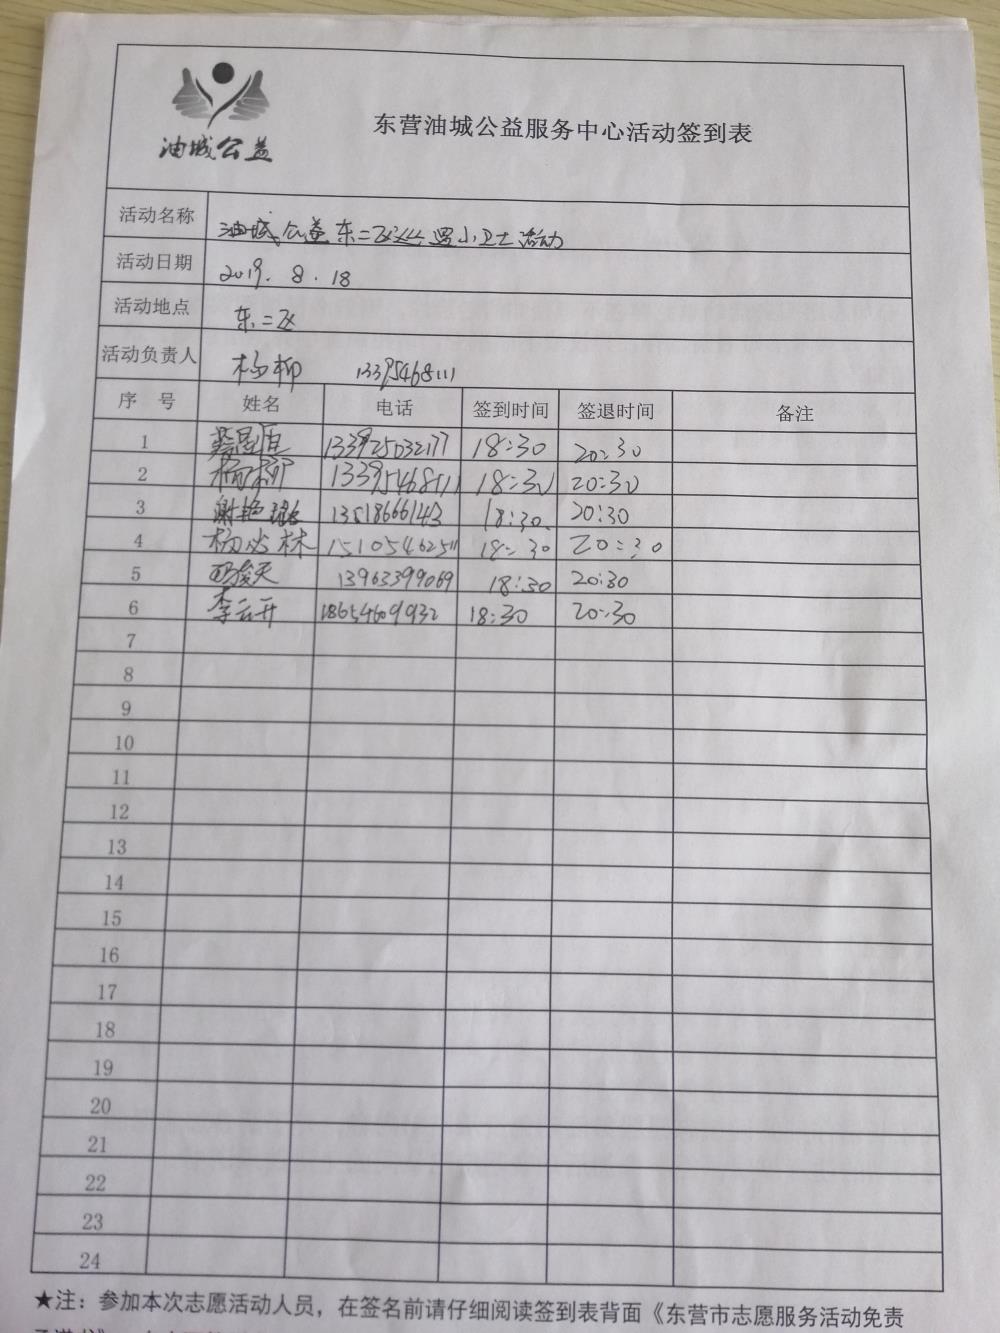 油城公益
东营油城公益服务中心活动签到表
活动名称 油城公益东二区 小卫士活动
活动日期 2019.8.18
活动地点 东二区
活动负责人 杨柳 13395468111
序 号 姓名 电话 签到时间 签退时间 备注
1 18:30 20:30
2 杨柳 13395468111 18:30 20:30
3 谢艳 13518666143 18:30 20:30
4 杨必林 15105462511 18:30 20:30
5 13963399069 18:30 20:30
6 李云开 18654609932 18:30 20:30
7
8
9
10
11
12
13
14
15
16
17
18
19
20
21
22
23
24
★注：参加本次志愿活动人员，在签名前请仔细阅读签到表背面《东营市志愿服务活动免责